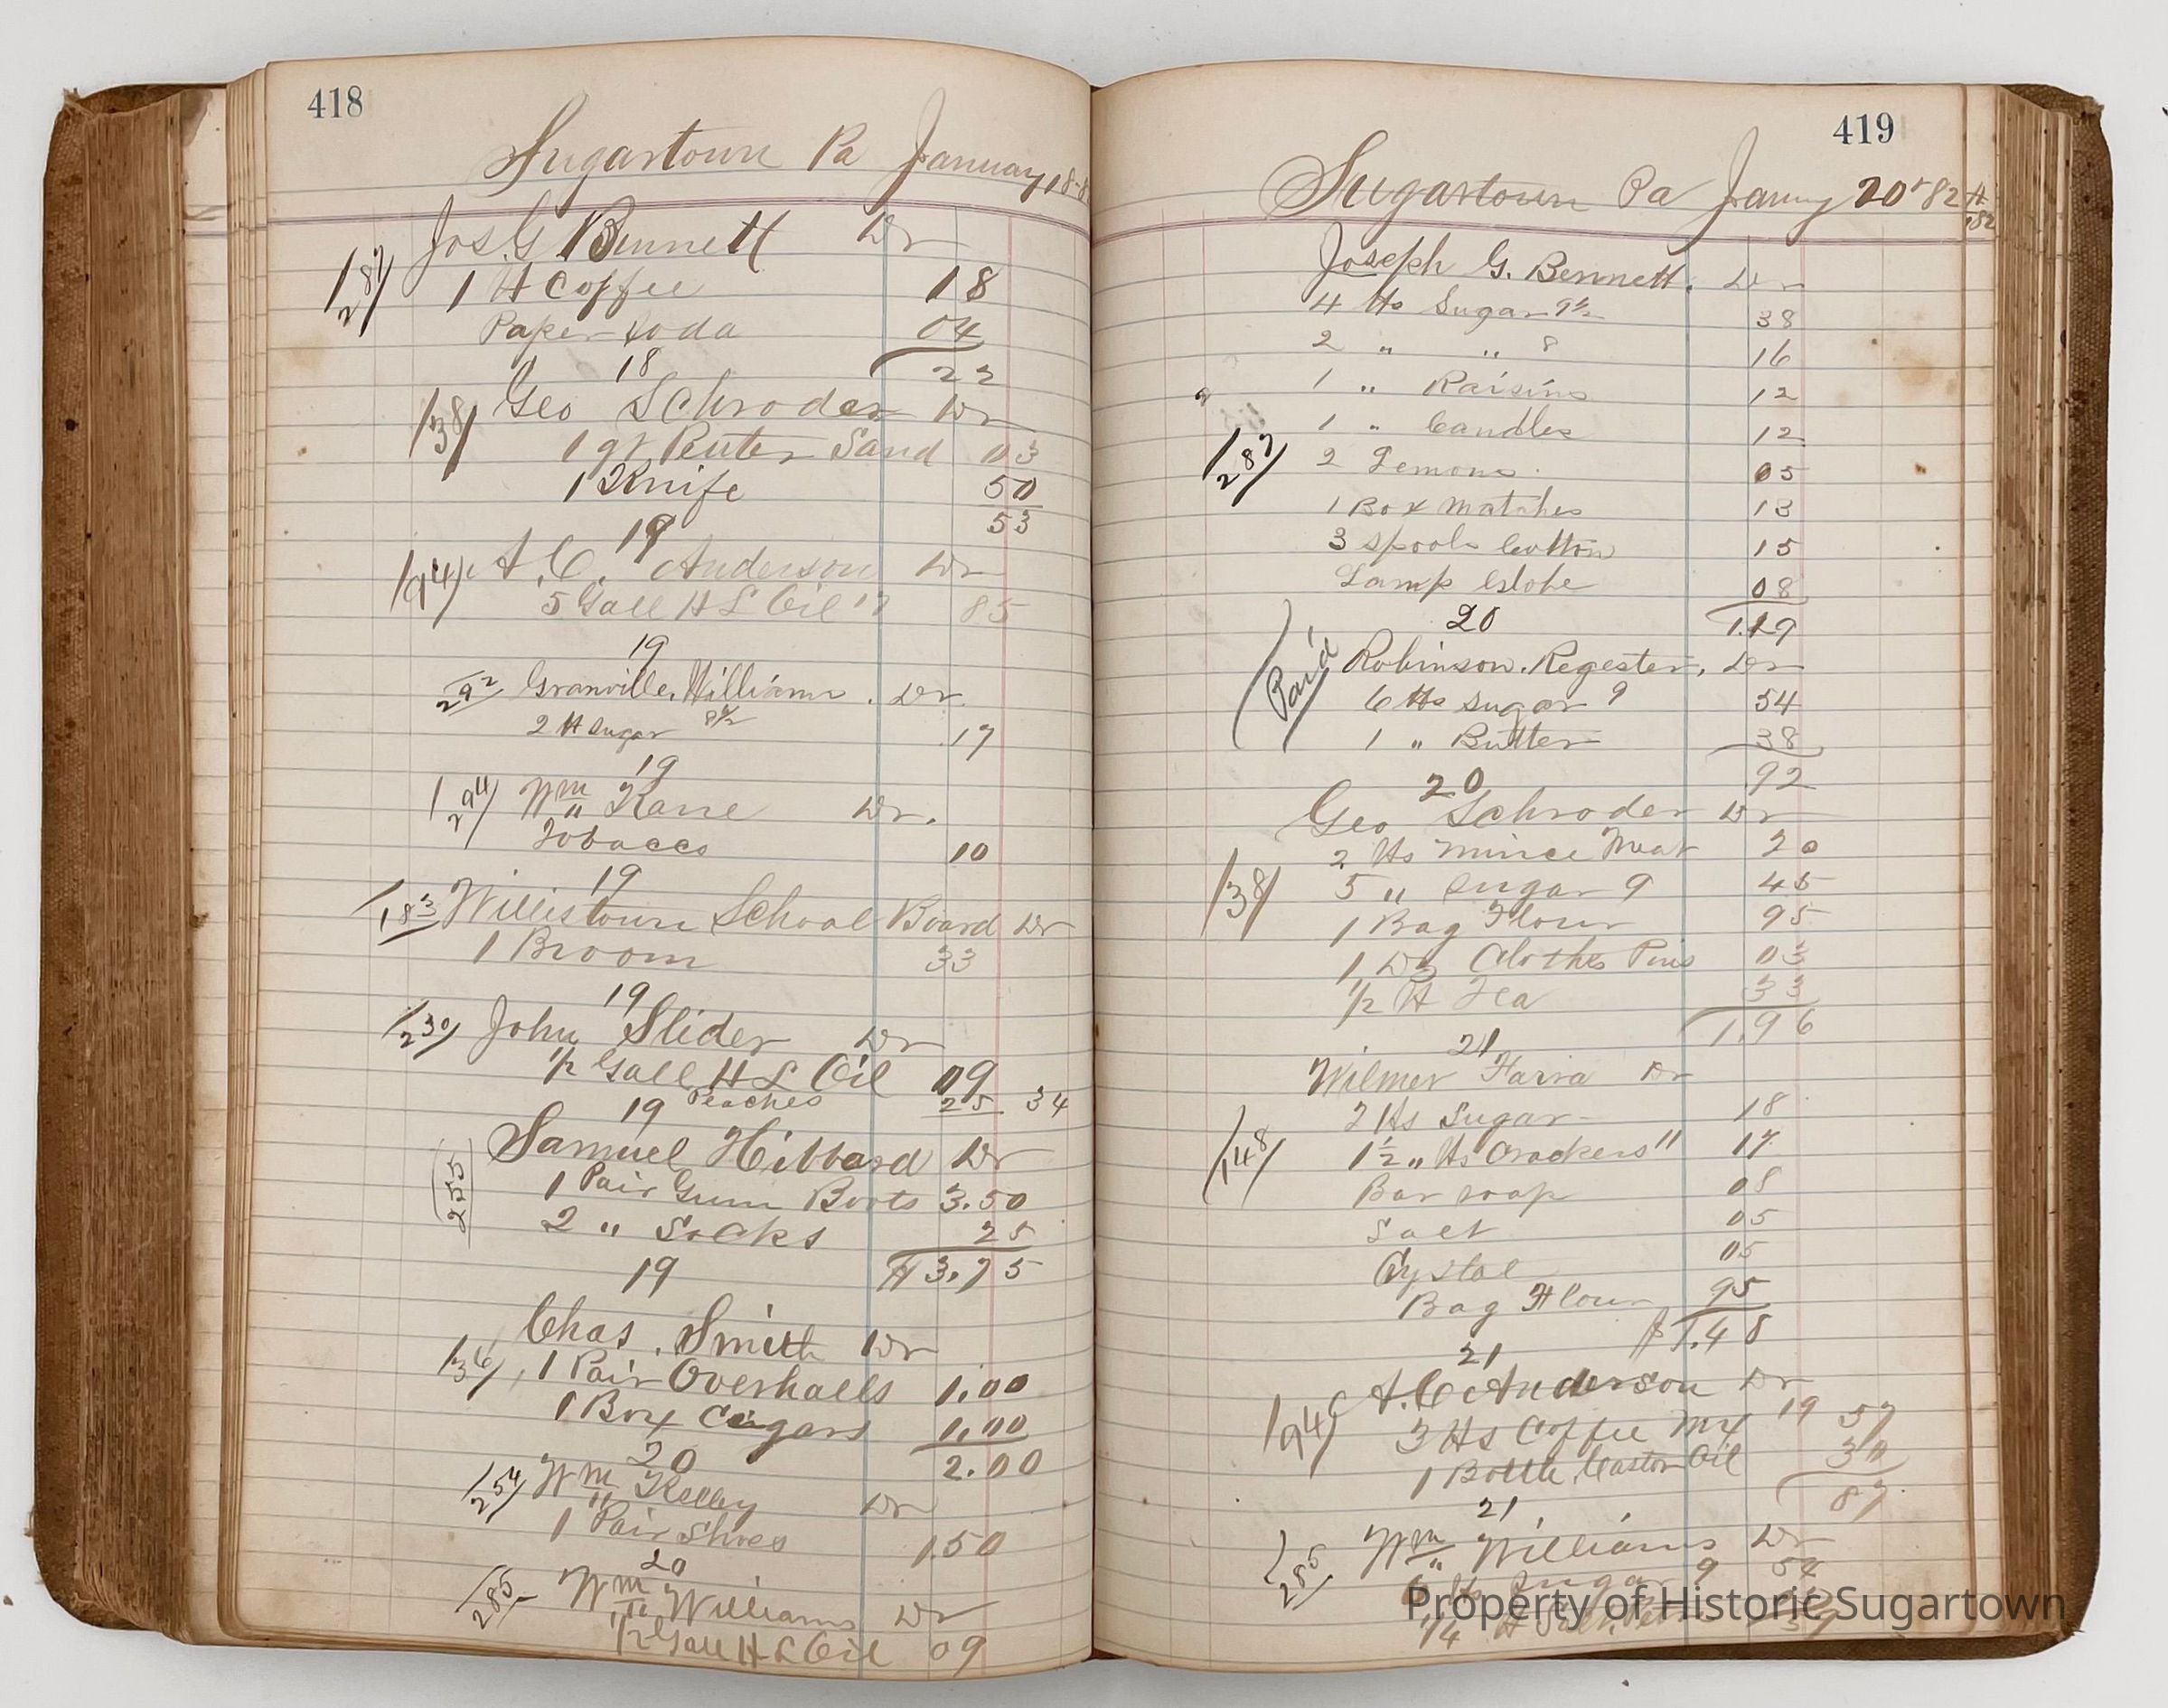 418
Sugartown Pa January 18-8
Jos. G Bennett Dr
287
1 # Coffee 18
Paper Soda 04
18 22
Geo Schroder Dr
138
1 qt Peuter Sand 03
1 Knife 50
19 53
A. C. Anderson Dr
194
5 Gall H L Oil 17 85
19
292 Granville Williams. Dr.
2 # Sugar 8 1/2 .17
19
294 Wm Kane Dr.
Tobacco 10
19
183 Willistown School Board Dr
1 Broom 33
19
230 John Slider Dr
1/2 Gall H L Oil 09
Peaches 25 34
19
Samuel Hibbard Dr
255
1 Pair Gum Boots 3.50
2 " Socks 25
19 $3.75
Chas. Smith Dr
136 1 Pair Overhalls 1.00
1 Box Cigars 1.00
20 2.00
254 Wm Kelley Dr
1 Pair Shoes 1.50
20
285 Wm Williams Dr
1/2 Gall H L Oil 09
419
Sugartown Pa Januny 20" 82
Joseph G. Bennett. Dr
4 #s Sugar 9 1/2 38
2 " " 8 16
1 " Raisins 12
1 " Candles 12
287
2 Lemons 05
1 Box Matches 13
3 Spools Cotton 15
Lamp Globe 08
20 1.19
Paid
Robinson. Regester, Dr
6 #s Sugar 9 54
1 " Butter 38
20 .92
Geo Schroder Dr
2 #s Mince Meat 20
138
5 " Sugar 9 45
1 Bag Flour 95
1 Dz Clothes Pins 03
1/2 # Tea 33
1.96
21
Wilmer Farra Dr
2 #s Sugar 18
148
1 1/2 " #s Crackers 11 17
Bar soap 08
Salt 05
Cystal 05
Bag Flour 95
$1.48
21
194 A. C. Anderson Dr
3 #s Coffee Mx 19 57
1 Bottle Castor Oil 30
87
21
285 Wm Williams Dr
6 #s Sugar 9 54
1/4 #
Property of Historic Sugartown